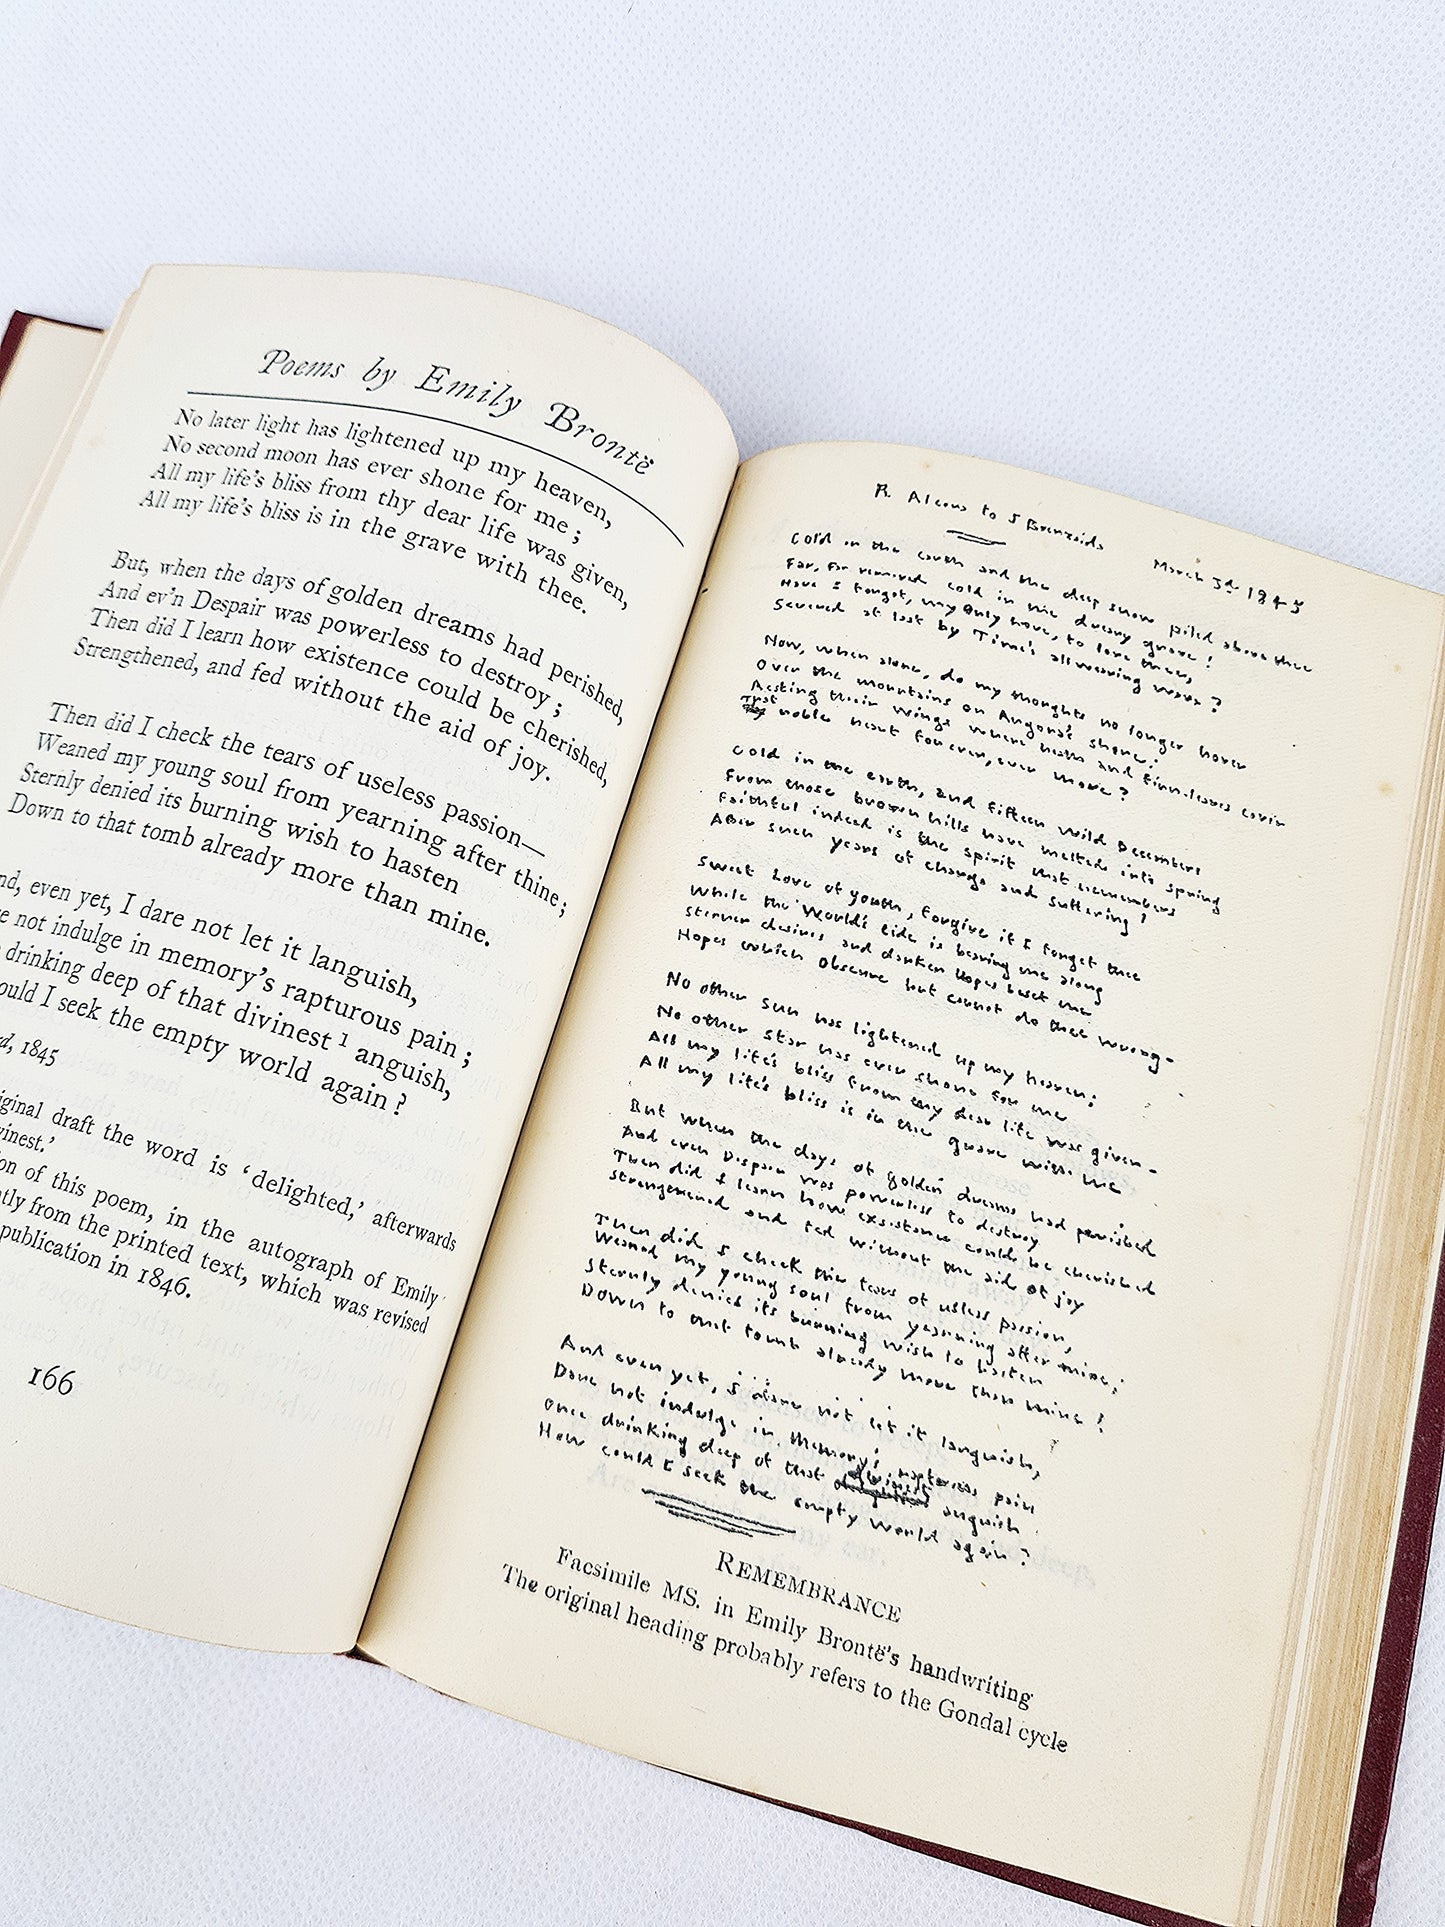 Poems by Emily Brontë
No later light has lightened up my heaven,
No second moon has ever shone for me ;
All my life's bliss from thy dear life was given,
All my life's bliss is in the grave with thee.
But, when the days of golden dreams had perished,
And ev'n Despair was powerless to destroy ;
Then did I learn how existence could be cherished,
Strengthened, and fed without the aid of joy.
Then did I check the tears of useless passion—
Weaned my young soul from yearning after thine ;
Sternly denied its burning wish to hasten
Down to that tomb already more than mine.
nd, even yet, I dare not let it languish,
e not indulge in memory's rapturous pain ;
drinking deep of that divinest 1 anguish,
ould I seek the empty world again ?
d, 1845
iginal draft the word is ' delighted,' afterwards
vinest.'
on of this poem, in the autograph of Emily
tly from the printed text, which was revised
publication in 1846.
166
R. Alcona to J Brenzaida March 3d 1845
Cold in the earth and the deep snow piled above thee
Far, far removed cold in the dreary grave !
Have I forgot, my Only Love, to love thee,
Severed at last by Time's allwearing wave ?
Now, when alone, do my thoughts no longer hover
Over the mountains on Angora's shore ;
Resting their wings where heath and fern-leaves cover
That noble heart for ever, ever more ?
Cold in the earth, and fifteen wild Decembers
From those brown hills have melted into spring
Faithful indeed is the spirit that remembers
After such years of change and suffering !
Sweet Love of youth, forgive if I forget thee
While the World's tide is bearing me along
Sterner desires and darker Hopes beset me
Hopes which obscure but cannot do thee wrong-
No other Sun has lightened up my heaven ;
No other Star has ever shone for me
All my life's bliss from thy dear life was given-
All my life's bliss is in the grave with thee
But when the days of golden dreams had perished
And even Despair was powerless to destroy
Then did I learn how existance could be cherished
Strengthened and fed without the aid of joy
Then did I check the tears of usless passion,
Weaned my young soul from yearning after thine ;
Sternly denied its burning wish to hasten
Down to that tomb already more than mine !
And even yet, I dare not let it languish,
Dare not indulge in Memory's rapturous pain
Once drinking deep of that divinest anguish
How could I seek the empty world again ?
REMEMBRANCE
Facsimile MS. in Emily Brontë's handwriting
The original heading probably refers to the Gondal cycle